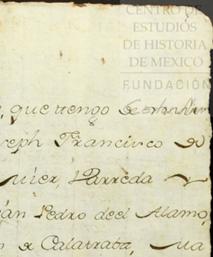 CENTRO DE
ESTUDIOS
DE HISTORIA
DE MEXICO
FUNDACIÓN
que tengo
seph Francisco de
Mier, Parreda y
án Pedro deel Alamo,
n de Calatraba, Ma